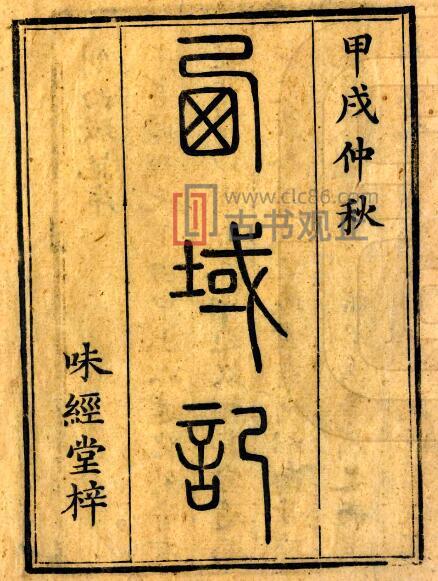 甲戌仲秋
西域記
味經堂梓
www.clc86.com
古书观止